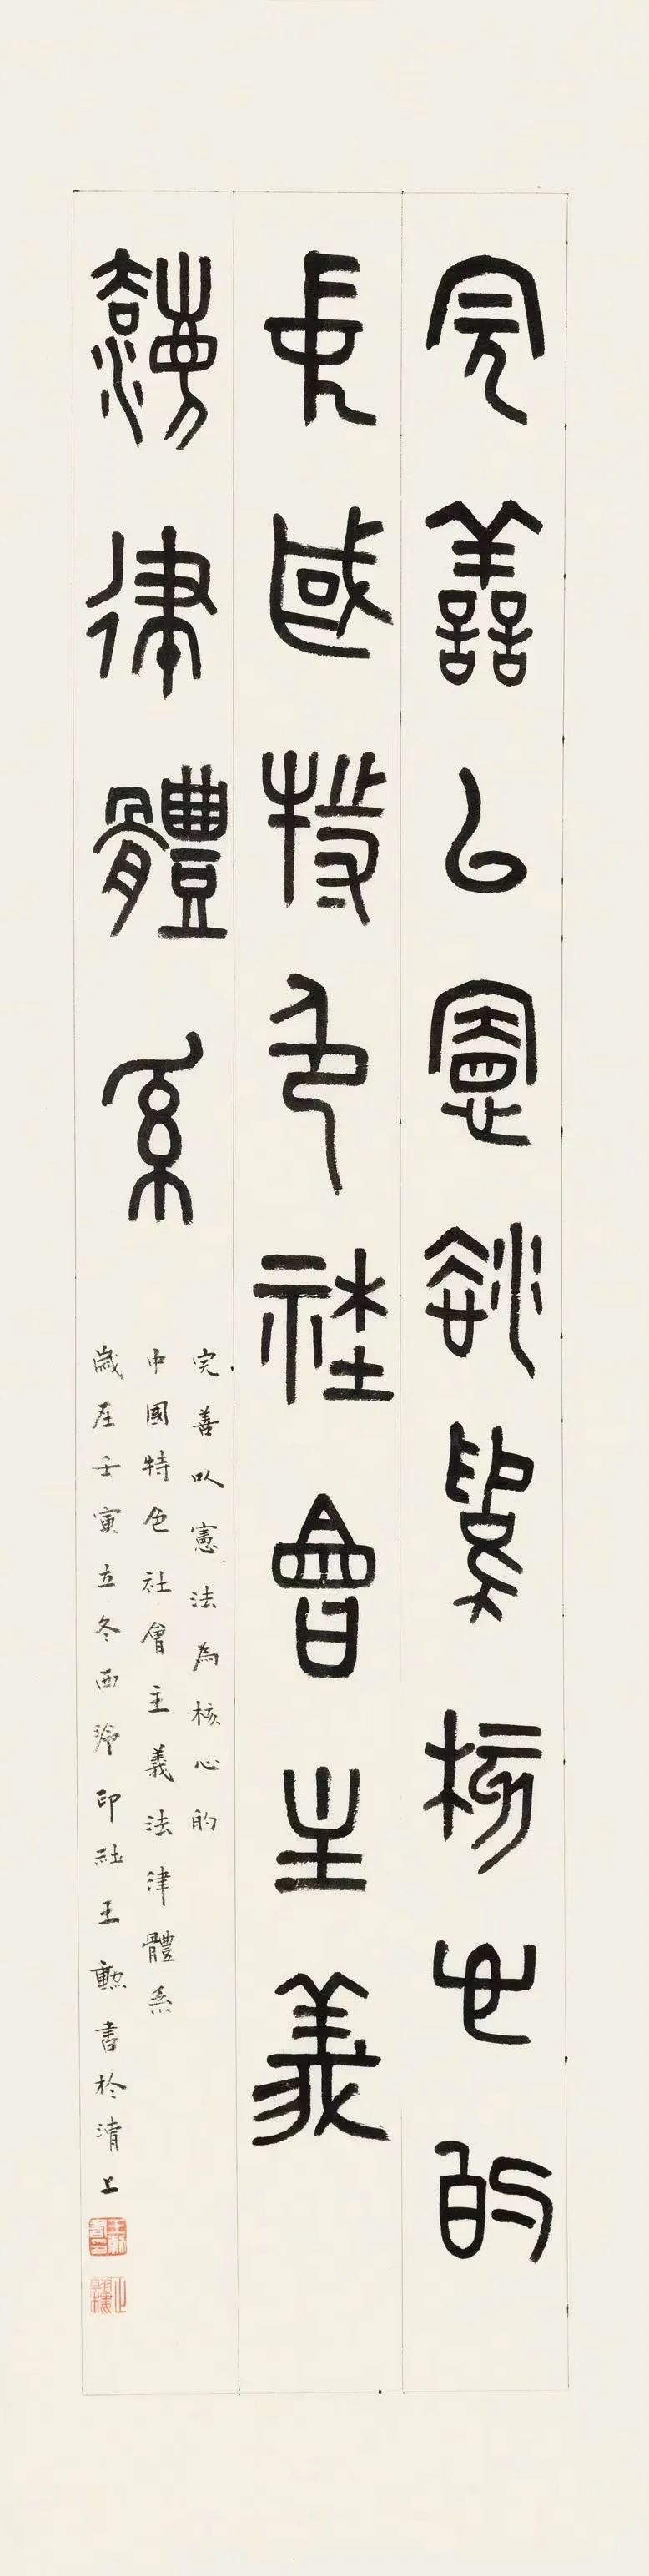 完善以憲法為核心的
中國特色社會主義
法律體系
完善以憲法為核心的
中國特色社會主義法律體系
歲在壬寅立冬西泠印社王勳書於清上